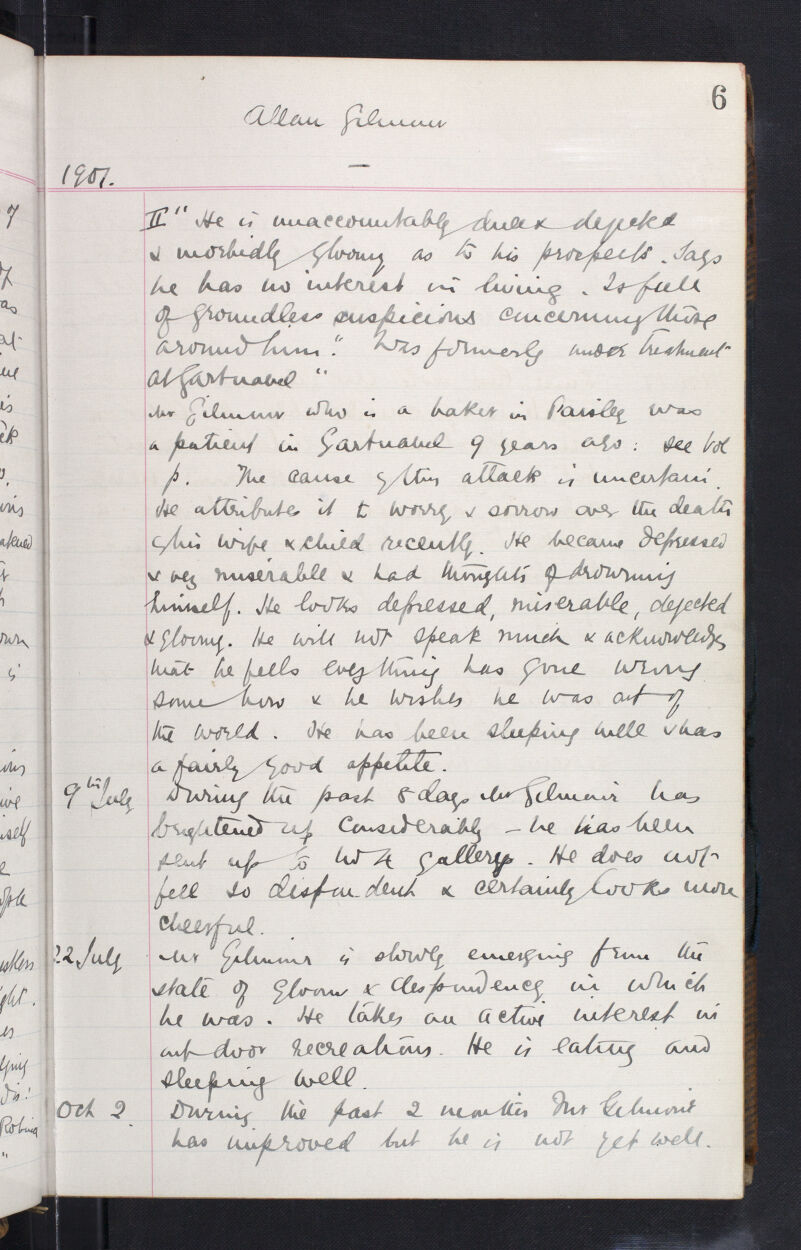 6
Allan Gilmour
1901.
II" He is unaccountably dull & dejected
& morbidly gloomy as to his prospects. Says
he has no interest in living. Is full
of groundless suspicions concerning those
around him". Was formerly under treatment
at Gartnavel "
Mr Gilmour who is a baker in Paisley was
a patient in Gartnavel 9 years ago: see Vol
p. The cause of this attack is uncertain.
He attributes it to worry & sorrow over the death
of his wife & child recently. He became depressed
& very miserable & had thoughts of drowning
himself. He looks depressed, miserable, dejected
& gloomy. He will not speak much & acknowledges
that he fells everything has gone wrong
some how & he wishes he was out of
the world. He has been sleeping well & has
a fairly good appetite.
9th July During the past 8 days Mr Gilmour has
brightened up considerably - he has been
sent up to No 4 gallery. He does not
fell so despondent & certainly looks more
cheerful.
22 July Mr Gilmour is slowly emerging from the
state of gloom & despondency in which
he was. He takes an active interest in
out door recreations. He is eating and
sleeping well.
Oct 2. During the past 2 months Mr Gilmour
has improved but he is not yet well.